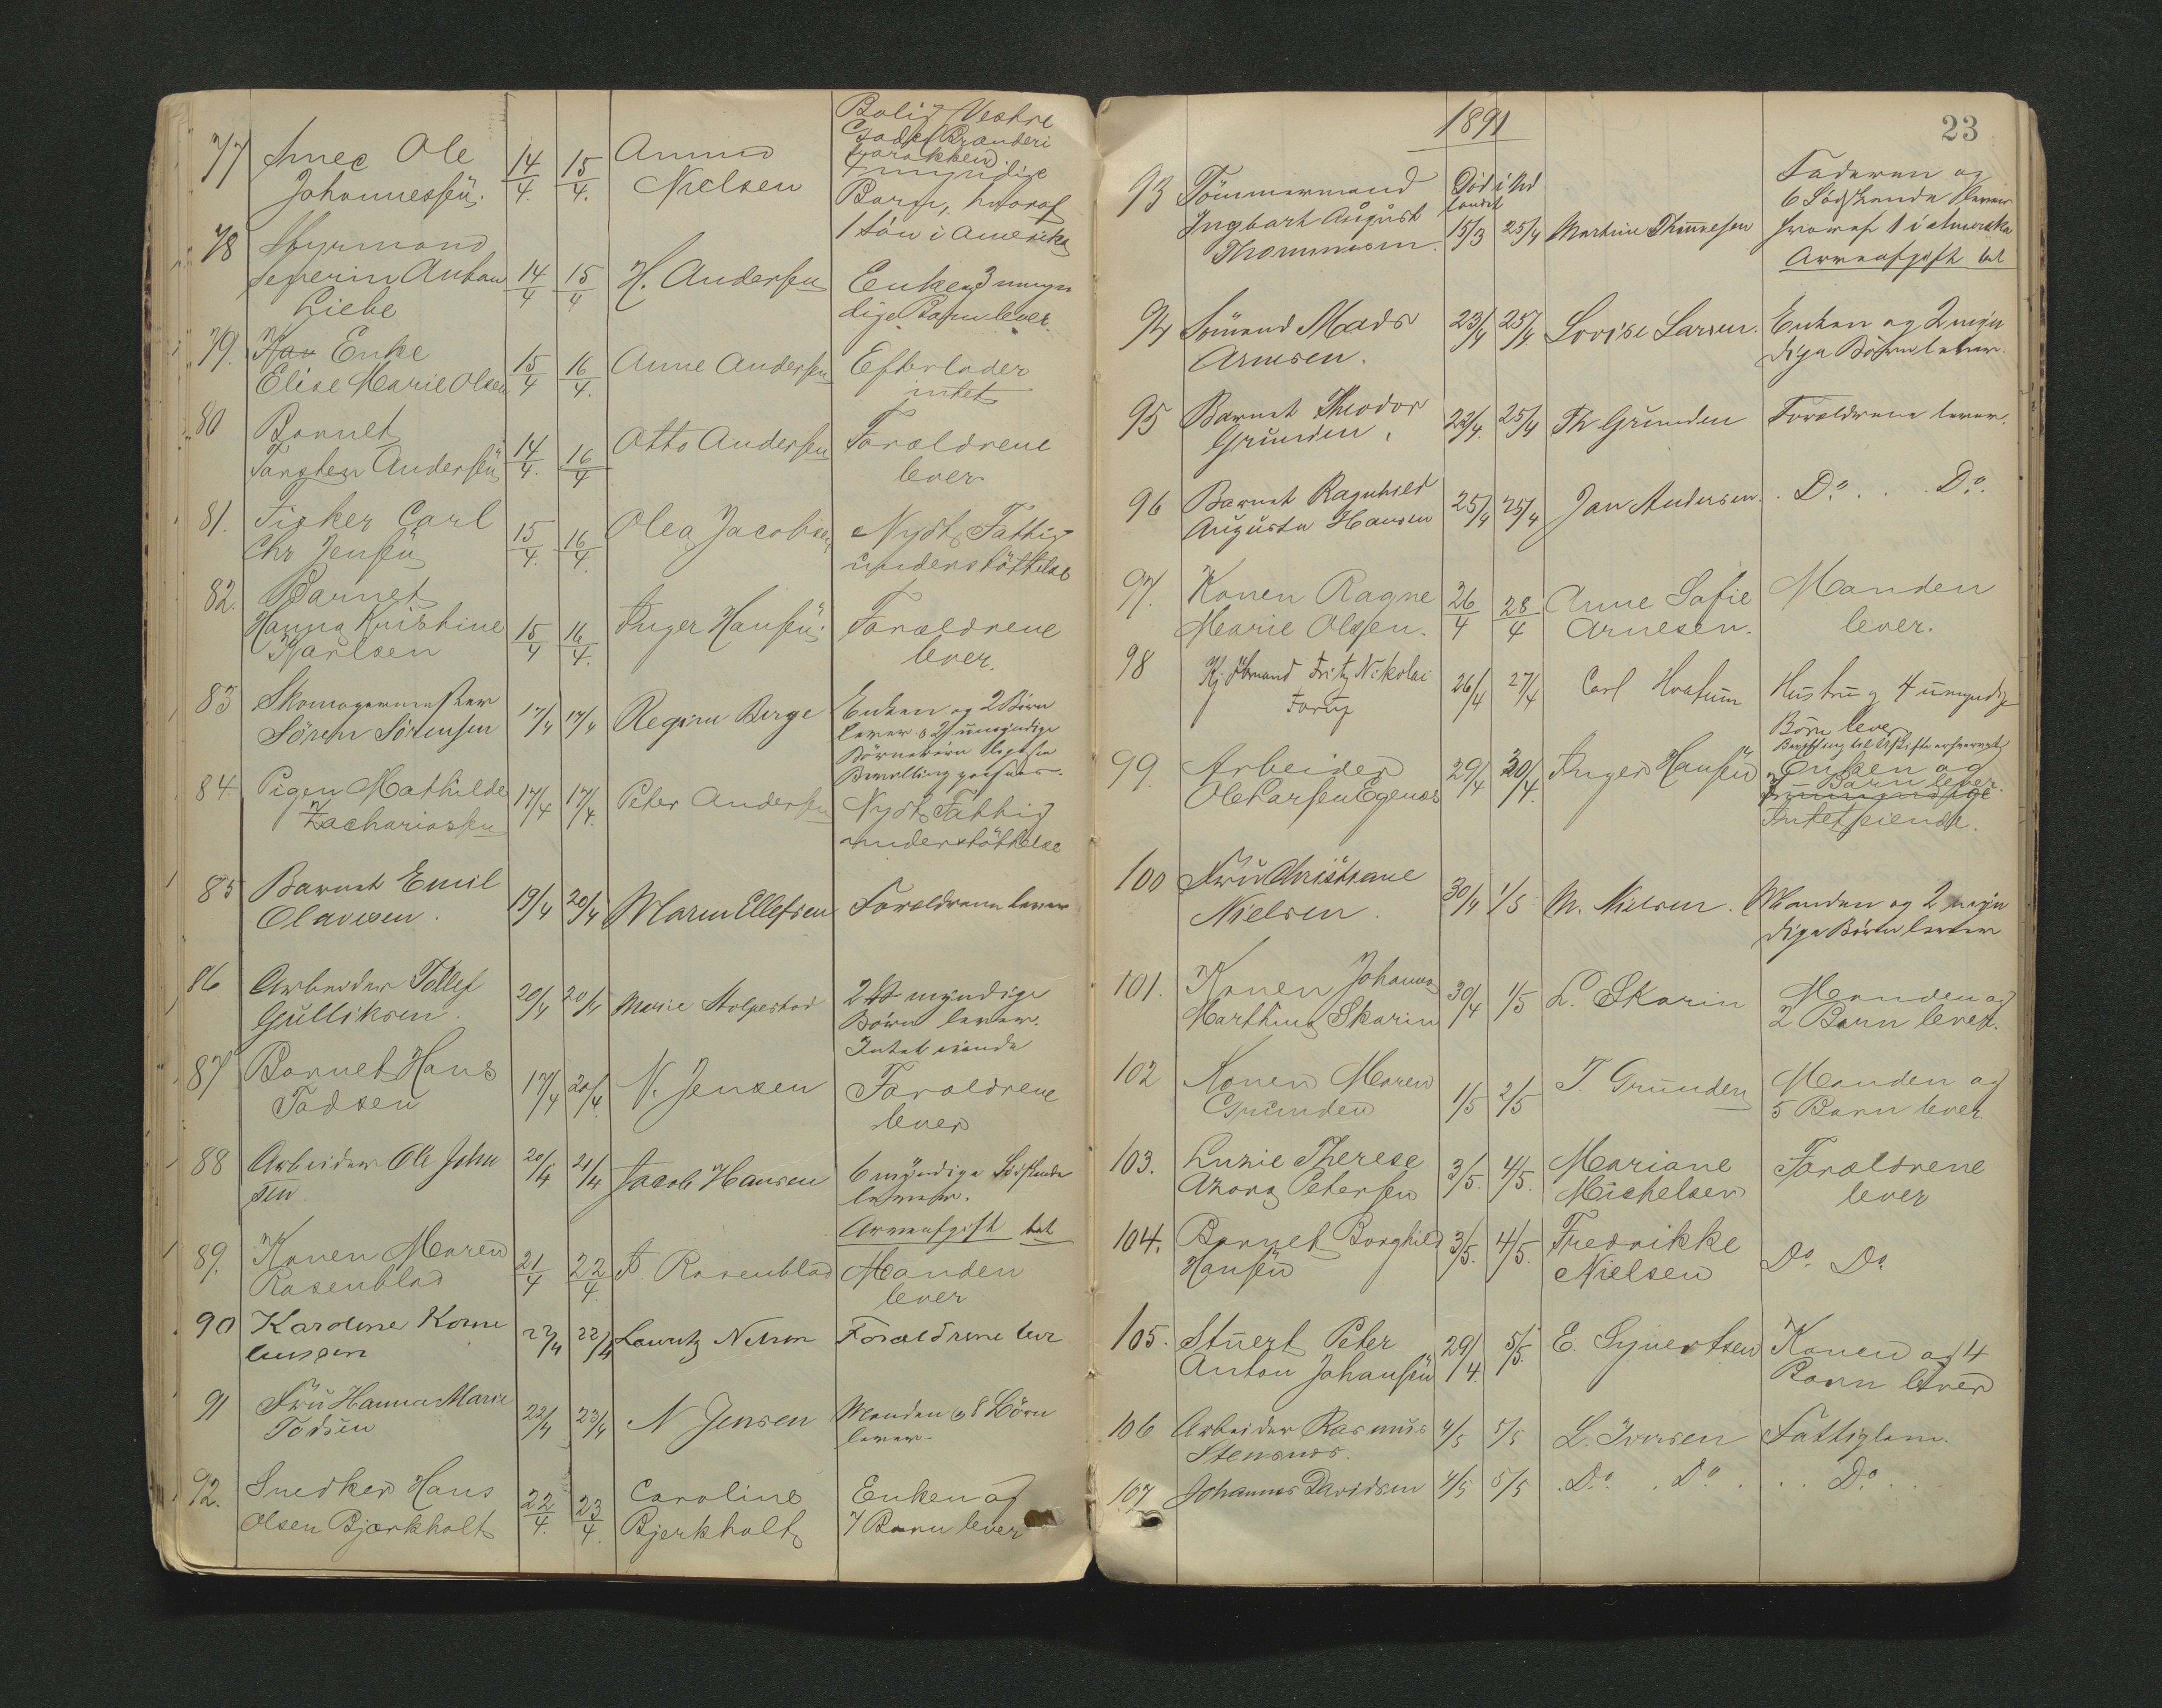 77 Ole 14/4. 15/4. Anna Bolig Vestre
Johannessen. Nielsen Brænderi
4 myndige
Børn, hvoraf
1 Sön i Amerika
78 Styrmand
Severin Anton 14/4 15/4 H. Andersen Enke og 3 myn
Liebe dige Børn lever.
79. Enke 15/4 16/4. Anne Andersen Efterlader
Elise Marie Olsen intet
80 Barnet 14/4. 16/4 Otto Andersen Forældrene
Torsten Andersen lever
81. Fisker Carl 15/4. 16/4. Olea Jacobsen Nydt Fattig
Chr Jensen understöttelse
82. Barnet
Hanna Kristine 15/4 16/4. Inger Hansen. Forældrene
Karlsen lever.
83 Skomagermester 17/4 17/4 Regine Berge Enken og 2 Börn
Sören Sörensen lever o 2 umyndige
Börnebörn
Bevilling
84. Pigen Mathilde 17/4 17/4. Peter Andersen Nydt Fattig
Zachariassen understöttelse
85 Barnet Emil 19/4 20/4 Maren Ellefsen Forældrene lever
Olavesen.
86 Arbeider Tollef 20/4 20/4 Marie Stolpestad 2 myndige
Gulliksen. Börn lever.
Intet eiende
87 Barnet Hans 17/4 20/4. N. Jensen Forældrene
Todsen lever
88 Arbeider Ole John 20/4 21/4 Jacob Hansen 6 myndige Södskende
sen. lever.
Arveafgift bet
89. Konen Maren 21/4 22/4. Rosenblad Manden
Rosenblad lever
90 Karoline Korne 22/4 22/4 Lauritz Nelson Forældrene lever
liussen
91 Fru Hanna Marie 22/4 23/4 N Jensen Manden og 8 Börn
Todsen lever.
92. Snedker Hans 22/4. 23/4. Caroline Enken og
Olsen Bjørkholt Bjerkholt 7 Barn lever
1891 23
93 Tömmermand Död i Ud Faderen og
Ingbart August landet 6 Södskende lever
Thommesen. 15/3 25/4 Martine Thommesen hvoraf 1 i Amerika
Arveafgift bet
94 Sömand Mads 23/4 25/4. Lovise Larsen. Enken og 2 myn
Arnesen. dige Börn lever.
95 Barnet Theodor 22/4. 25/4 Th Grunden Forældrene lever.
Grunden.
96 Barnet Ragnhild 25/4 25/4 Jan Andersen. Do. Do.
Augusta Hansen
97. Konen Ragne 26/4 28/4 Anne Sofie Manden
Marie Olsen. Arnesen. lever.
98 Fritz Nikolai 26/4 27/4 Carl Hustru og 4 umyndige
Börn lever
99. Arbeider 29/4 30/4. Inger Hansen Enken og
Ole Larsen Egenæs Barn lever.
Intet eiende.
100 Fru Christiane 30/4 1/5 M. Nielsen. Manden og 2 myn
Nielsen. dige Börn lever
101. Konen Johanna 30/4 1/5 L. Skarin Manden og
Marthina Skarin 2 Barn lever.
102 Konen Maren 1/5 2/5 T. Grunden Manden og
Grunden 5 Barn lever.
103. Luzie Therese 3/5. 4/5. Mariane Forældrene
Azora Petersen Michelsen lever
104. Barnet Borghild 3/5. 4/5. Fredrikke Do. Do.
Hansen Nielsen
105. Stuert Peter 29/4. 5/5. E. Syvertsen Konen og 4
Anton Johansen Barn lever
106 Arbeider Rasmus 4/5 5/5 L. Iversen Fattiglem.
Stensnæs.
107 Johannes Davidsen 4/5 5/5 Do. Do. Do.